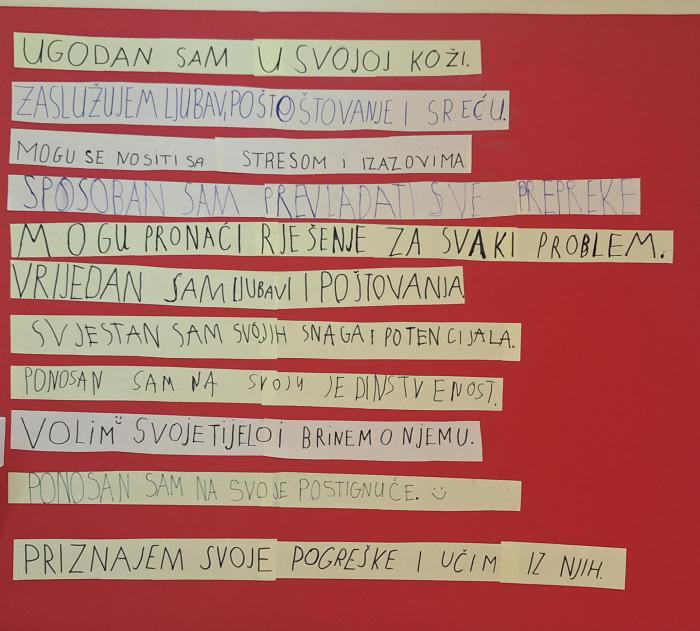 UGODAN SAM U SVOJOJ KOŽI.
ZASLUŽUJEM LJUBAV, POŠTOŠTOVANJE I SREĆU.
MOGU SE NOSITI SA STRESOM I IZAZOVIMA
SPOSOBAN SAM PREVLADATI SVE PREPREKE
MOGU PRONAĆI RJEŠENJE ZA SVAKI PROBLEM.
VRIJEDAN SAM LJUBAVI I POŠTOVANJA
SVJESTAN SAM SVOJIH SNAGA I POTENCIJALA.
PONOSAN SAM NA SVOJU JEDINSTVENOST.
VOLIM SVOJE TIJELO I BRINEM O NJEMU.
PONOSAN SAM NA SVOJE POSTIGNUĆE. ☺
PRIZNAJEM SVOJE POGREŠKE I UČIM IZ NJIH.